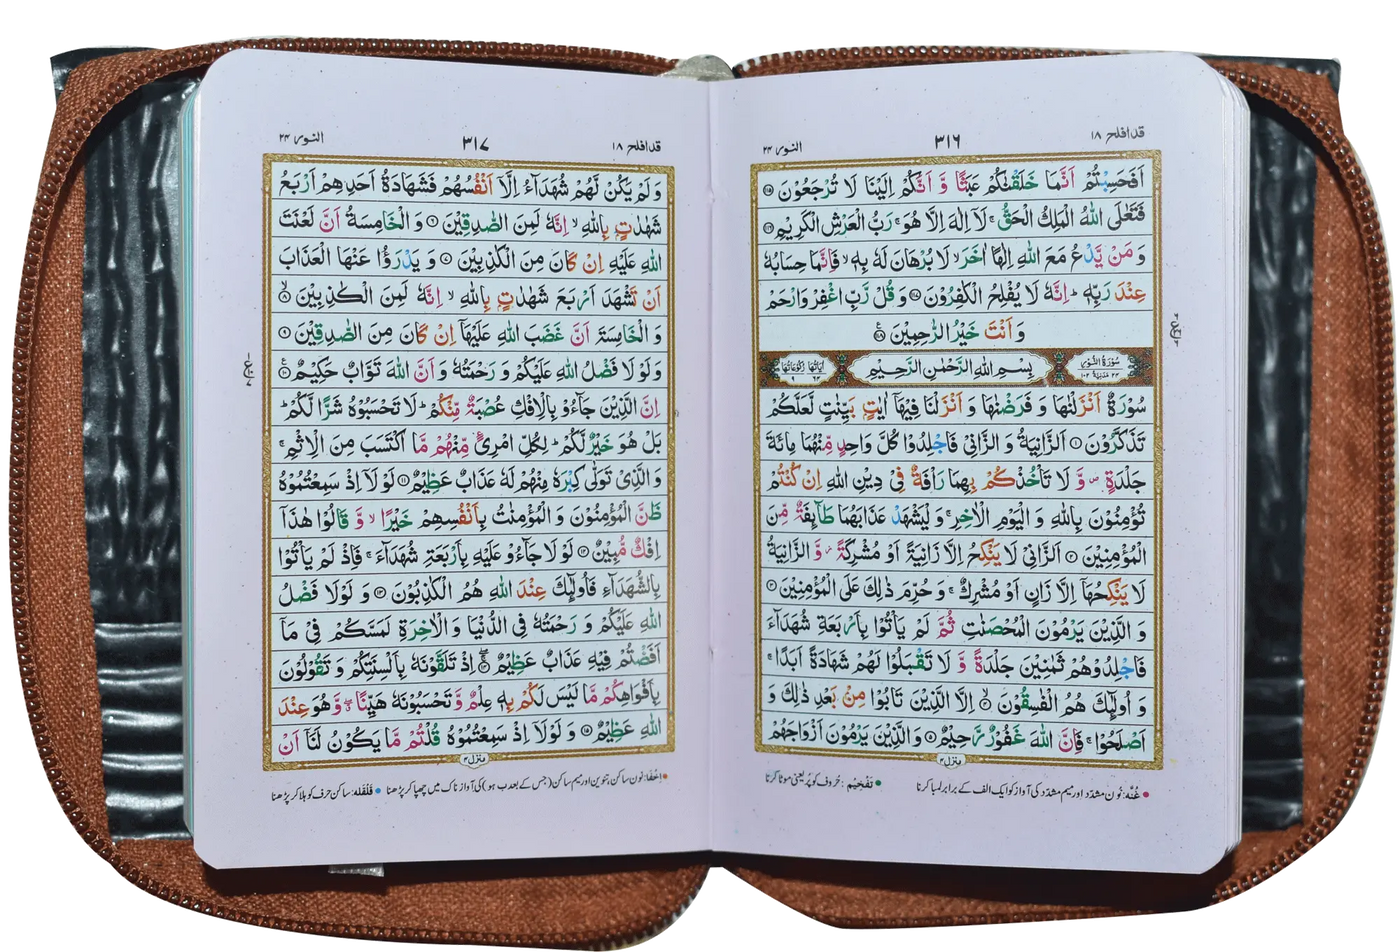 قدافلح ۱۸
۳۱۶
النور ۲۴
اَفَحَسِبْتُمْ اَنَّمَا خَلَقْنٰكُمْ عَبَثًا وَّ اَنَّكُمْ اِلَیْنَا لَا تُرْجَعُوْنَ ۱۱۵
فَتَعٰلَی اللّٰهُ الْمَلِكُ الْحَقُّ ۚ لَاۤ اِلٰهَ اِلَّا هُوَ ۚ رَبُّ الْعَرْشِ الْكَرِیْمِ ۱۱۶
وَ مَنْ یَّدْعُ مَعَ اللّٰهِ اِلٰهًا اٰخَرَ ۙ لَا بُرْهَانَ لَهٗ بِهٖ ۙ فَاِنَّمَا حِسَابُهٗ
عِنْدَ رَبِّهٖ ؕ اِنَّهٗ لَا یُفْلِحُ الْكٰفِرُوْنَ ۱۱۷ وَ قُلْ رَّبِّ اغْفِرْ وَارْحَمْ
وَ اَنْتَ خَیْرُ الرّٰحِمِیْنَ ۱۱۸
سُوْرَةُ النُّوْرِ
۲۴ مَدَنِیَّةٌ ۱۰۲
بِسْمِ اللّٰهِ الرَّحْمٰنِ الرَّحِیْمِ
اٰیَاتُهَا رُكُوْعَاتُهَا
۶۴ ۹
سُوْرَةٌ اَنْزَلْنٰهَا وَ فَرَضْنٰهَا وَ اَنْزَلْنَا فِیْهَاۤ اٰیٰتٍۭ بَیِّنٰتٍ لَّعَلَّكُمْ
تَذَكَّرُوْنَ ۱ اَلزَّانِیَةُ وَ الزَّانِیْ فَاجْلِدُوْا كُلَّ وَاحِدٍ مِّنْهُمَا مِائَةَ
جَلْدَةٍ ۪ وَّ لَا تَاْخُذْكُمْ بِهِمَا رَاْفَةٌ فِیْ دِیْنِ اللّٰهِ اِنْ كُنْتُمْ
تُؤْمِنُوْنَ بِاللّٰهِ وَ الْیَوْمِ الْاٰخِرِ ۚ وَ لْیَشْهَدْ عَذَابَهُمَا طَآىِٕفَةٌ مِّنَ
الْمُؤْمِنِیْنَ ۲ اَلزَّانِیْ لَا یَنْكِحُ اِلَّا زَانِیَةً اَوْ مُشْرِكَةً ؗ وَّ الزَّانِیَةُ
لَا یَنْكِحُهَاۤ اِلَّا زَانٍ اَوْ مُشْرِكٌ ۚ وَ حُرِّمَ ذٰلِكَ عَلَی الْمُؤْمِنِیْنَ ۳
وَ الَّذِیْنَ یَرْمُوْنَ الْمُحْصَنٰتِ ثُمَّ لَمْ یَاْتُوْا بِاَرْبَعَةِ شُهَدَآءَ
فَاجْلِدُوْهُمْ ثَمٰنِیْنَ جَلْدَةً وَّ لَا تَقْبَلُوْا لَهُمْ شَهَادَةً اَبَدًا ۚ
وَ اُولٰٓىِٕكَ هُمُ الْفٰسِقُوْنَ ۴ اِلَّا الَّذِیْنَ تَابُوْا مِنْۢ بَعْدِ ذٰلِكَ وَ
اَصْلَحُوْا ۚ فَاِنَّ اللّٰهَ غَفُوْرٌ رَّحِیْمٌ ۵ وَ الَّذِیْنَ یَرْمُوْنَ اَزْوَاجَهُمْ
منزل۴
● غُنّه: نون مشدّد اور میم مشدّد کی آواز کو ایک الف کے برابر لمبا کرنا ● تَفْخِیْم: حُروف کو پُر یعنی موٹا کرنا
قدافلح ۱۸
۳۱۷
النور ۲۴
وَ لَمْ یَكُنْ لَّهُمْ شُهَدَآءُ اِلَّاۤ اَنْفُسُهُمْ فَشَهَادَةُ اَحَدِهِمْ اَرْبَعُ
شَهٰدٰتٍۭ بِاللّٰهِ ۙ اِنَّهٗ لَمِنَ الصّٰدِقِیْنَ ۶ وَ الْخَامِسَةُ اَنَّ لَعْنَتَ
اللّٰهِ عَلَیْهِ اِنْ كَانَ مِنَ الْكٰذِبِیْنَ ۷ وَ یَدْرَؤُا عَنْهَا الْعَذَابَ
اَنْ تَشْهَدَ اَرْبَعَ شَهٰدٰتٍۭ بِاللّٰهِ ۙ اِنَّهٗ لَمِنَ الْكٰذِبِیْنَ ۸
وَ الْخَامِسَةَ اَنَّ غَضَبَ اللّٰهِ عَلَیْهَاۤ اِنْ كَانَ مِنَ الصّٰدِقِیْنَ ۹
وَ لَوْ لَا فَضْلُ اللّٰهِ عَلَیْكُمْ وَ رَحْمَتُهٗ وَ اَنَّ اللّٰهَ تَوَّابٌ حَكِیْمٌ ۱۰
اِنَّ الَّذِیْنَ جَآءُوْ بِالْاِفْكِ عُصْبَةٌ مِّنْكُمْ ؕ لَا تَحْسَبُوْهُ شَرًّا لَّكُمْ ؕ
بَلْ هُوَ خَیْرٌ لَّكُمْ ؕ لِكُلِّ امْرِئٍ مِّنْهُمْ مَّا اكْتَسَبَ مِنَ الْاِثْمِ ۚ
وَ الَّذِیْ تَوَلّٰی كِبْرَهٗ مِنْهُمْ لَهٗ عَذَابٌ عَظِیْمٌ ۱۱ لَوْ لَاۤ اِذْ سَمِعْتُمُوْهُ
ظَنَّ الْمُؤْمِنُوْنَ وَ الْمُؤْمِنٰتُ بِاَنْفُسِهِمْ خَیْرًا ۙ وَّ قَالُوْا هٰذَاۤ
اِفْكٌ مُّبِیْنٌ ۱۲ لَوْ لَا جَآءُوْ عَلَیْهِ بِاَرْبَعَةِ شُهَدَآءَ ۚ فَاِذْ لَمْ یَاْتُوْا
بِالشُّهَدَآءِ فَاُولٰٓىِٕكَ عِنْدَ اللّٰهِ هُمُ الْكٰذِبُوْنَ ۱۳ وَ لَوْ لَا فَضْلُ
اللّٰهِ عَلَیْكُمْ وَ رَحْمَتُهٗ فِی الدُّنْیَا وَ الْاٰخِرَةِ لَمَسَّكُمْ فِیْ مَاۤ
اَفَضْتُمْ فِیْهِ عَذَابٌ عَظِیْمٌ ۱۴ اِذْ تَلَقَّوْنَهٗ بِاَلْسِنَتِكُمْ وَ تَقُوْلُوْنَ
بِاَفْوَاهِكُمْ مَّا لَیْسَ لَكُمْ بِهٖ عِلْمٌ وَّ تَحْسَبُوْنَهٗ هَیِّنًا ۖ وَّ هُوَ عِنْدَ
اللّٰهِ عَظِیْمٌ ۱۵ وَ لَوْ لَاۤ اِذْ سَمِعْتُمُوْهُ قُلْتُمْ مَّا یَكُوْنُ لَنَاۤ اَنْ
منزل۴
● اخفا: نون ساکن، تنوین اور میم ساکن (جس کے بعد ب ہو) کی آواز ناک میں چھپا کر پڑھنا ● قلقلہ: ساکن حرف کو ہلا کر پڑھنا